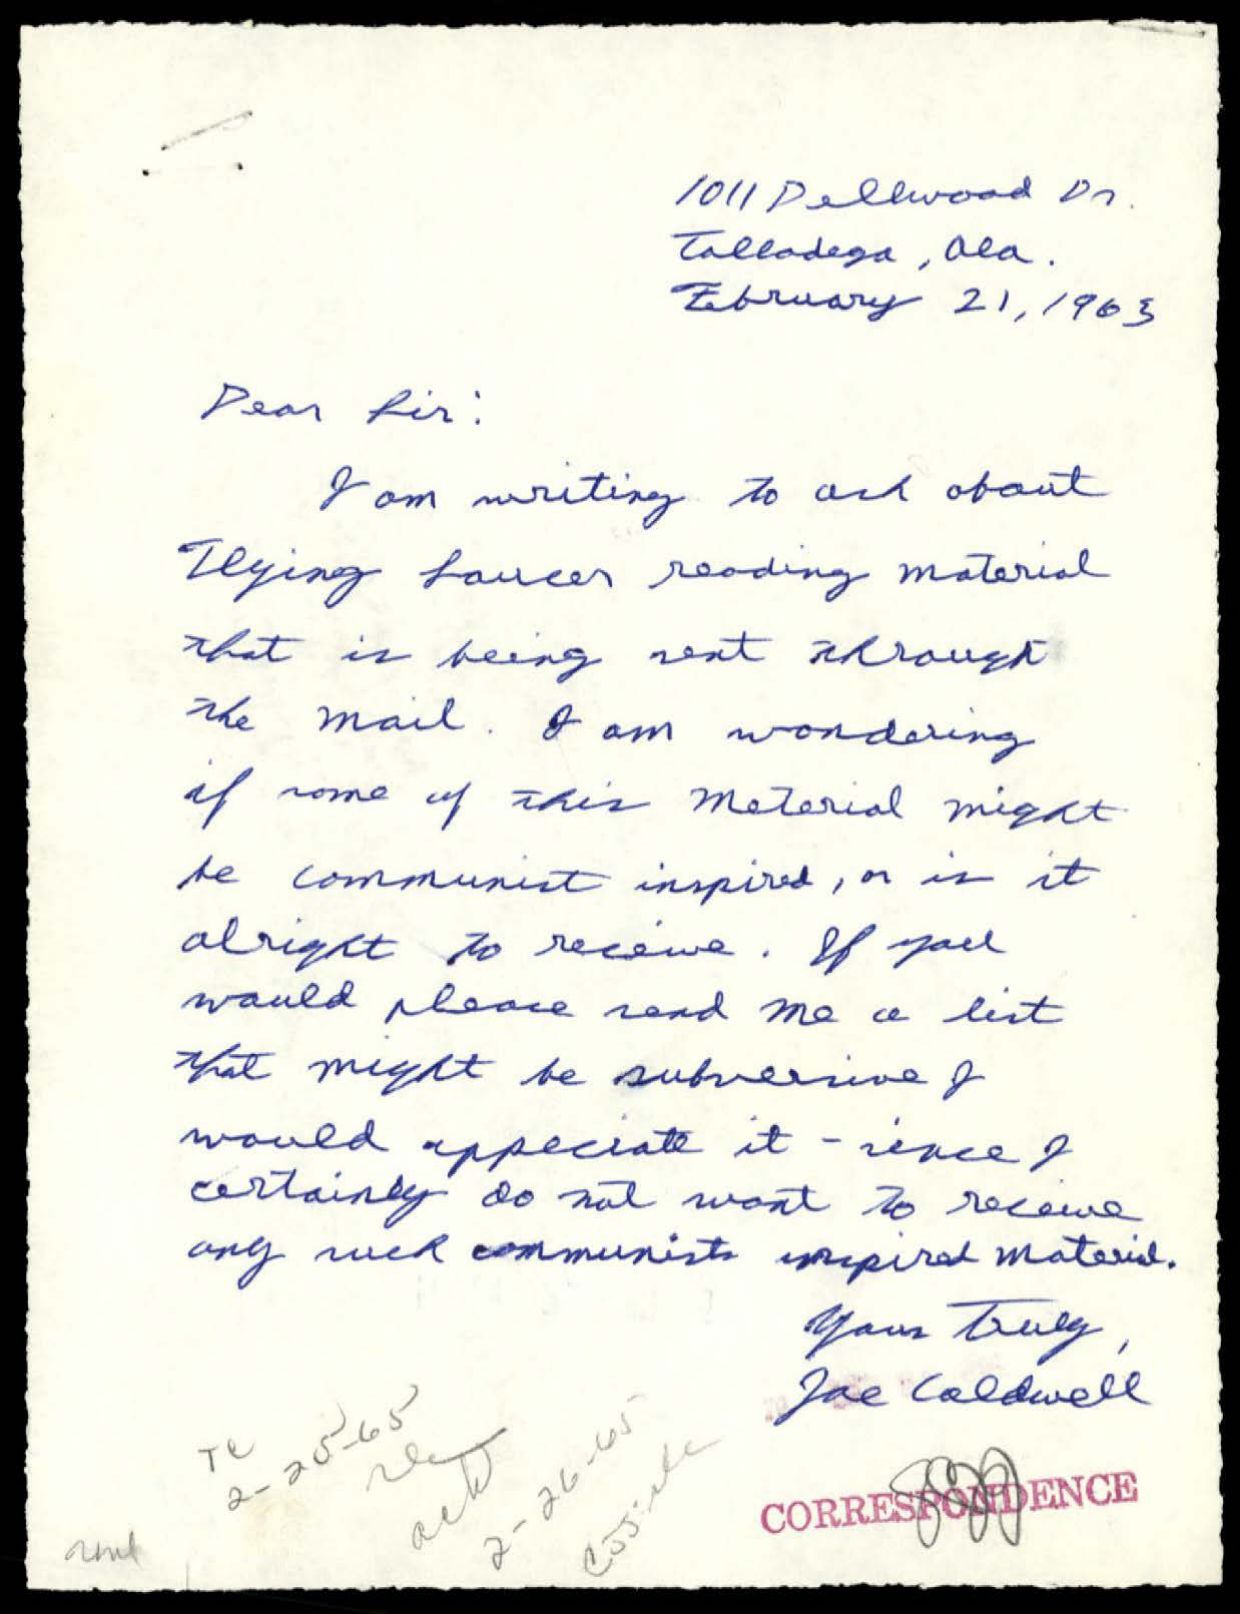 1011 Dellwood Dr.
Talladega, Ala.
February 21, 1963
Dear Sir:
I am writing to ask about
Flying Saucer reading material
that is being sent through
the mail. I am wondering
if some of this material might
be communist inspired, or is it
alright to receive. If you
would please send me a list
that might be subversive I
would appeciate it - since I
certainly do not want to receive
any such communists inspired material.
Yours Truly,
Joe Caldwell
2-25-65
ack
2-26-65
CORRESPONDENCE